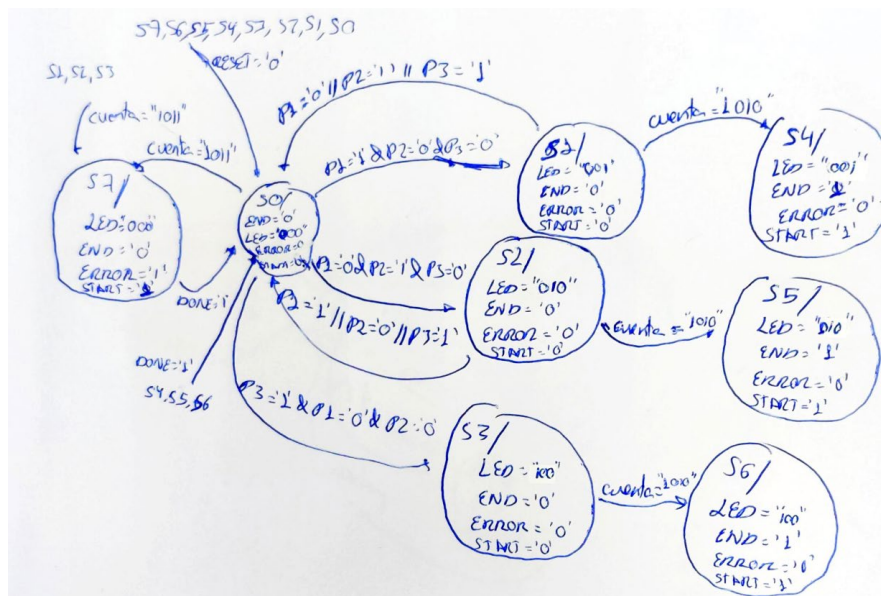 S7,S6,S5,S4,S3,S2,S1,S0
RESET='0'
S1,S2,S3
cuenta="1011"
cuenta="1011"
P1='0'//P2='1'//P3='1'
P1='1'&P2='0'&P3='0'
cuenta="1010"
S7/
LED="000"
END='0'
ERROR='1'
START='1'
S0/
END='0'
LED="000"
ERROR=0
S1/
LED="001"
END='0'
ERROR='0'
START='0'
S4/
LED="001
END='1'
ERROR='0'
START='1'
DONE='1'
P1='0'&P2='1'&P3='0'
P1='1'//P2='0'//P3='1'
S2/
LED="010"
END='0'
ERROR='0'
START='0'
cuenta="1010"
S5/
LED="010"
END='1'
ERROR='0'
START='1'
DONE='1'
S4,S5,S6
P3='1&P1='0'&P2='0'
S3/
LED="100"
END='0'
ERROR='0'
START='0'
cuenta="1010"
S6/
LED="100"
END='1'
ERROR='0'
START='1'